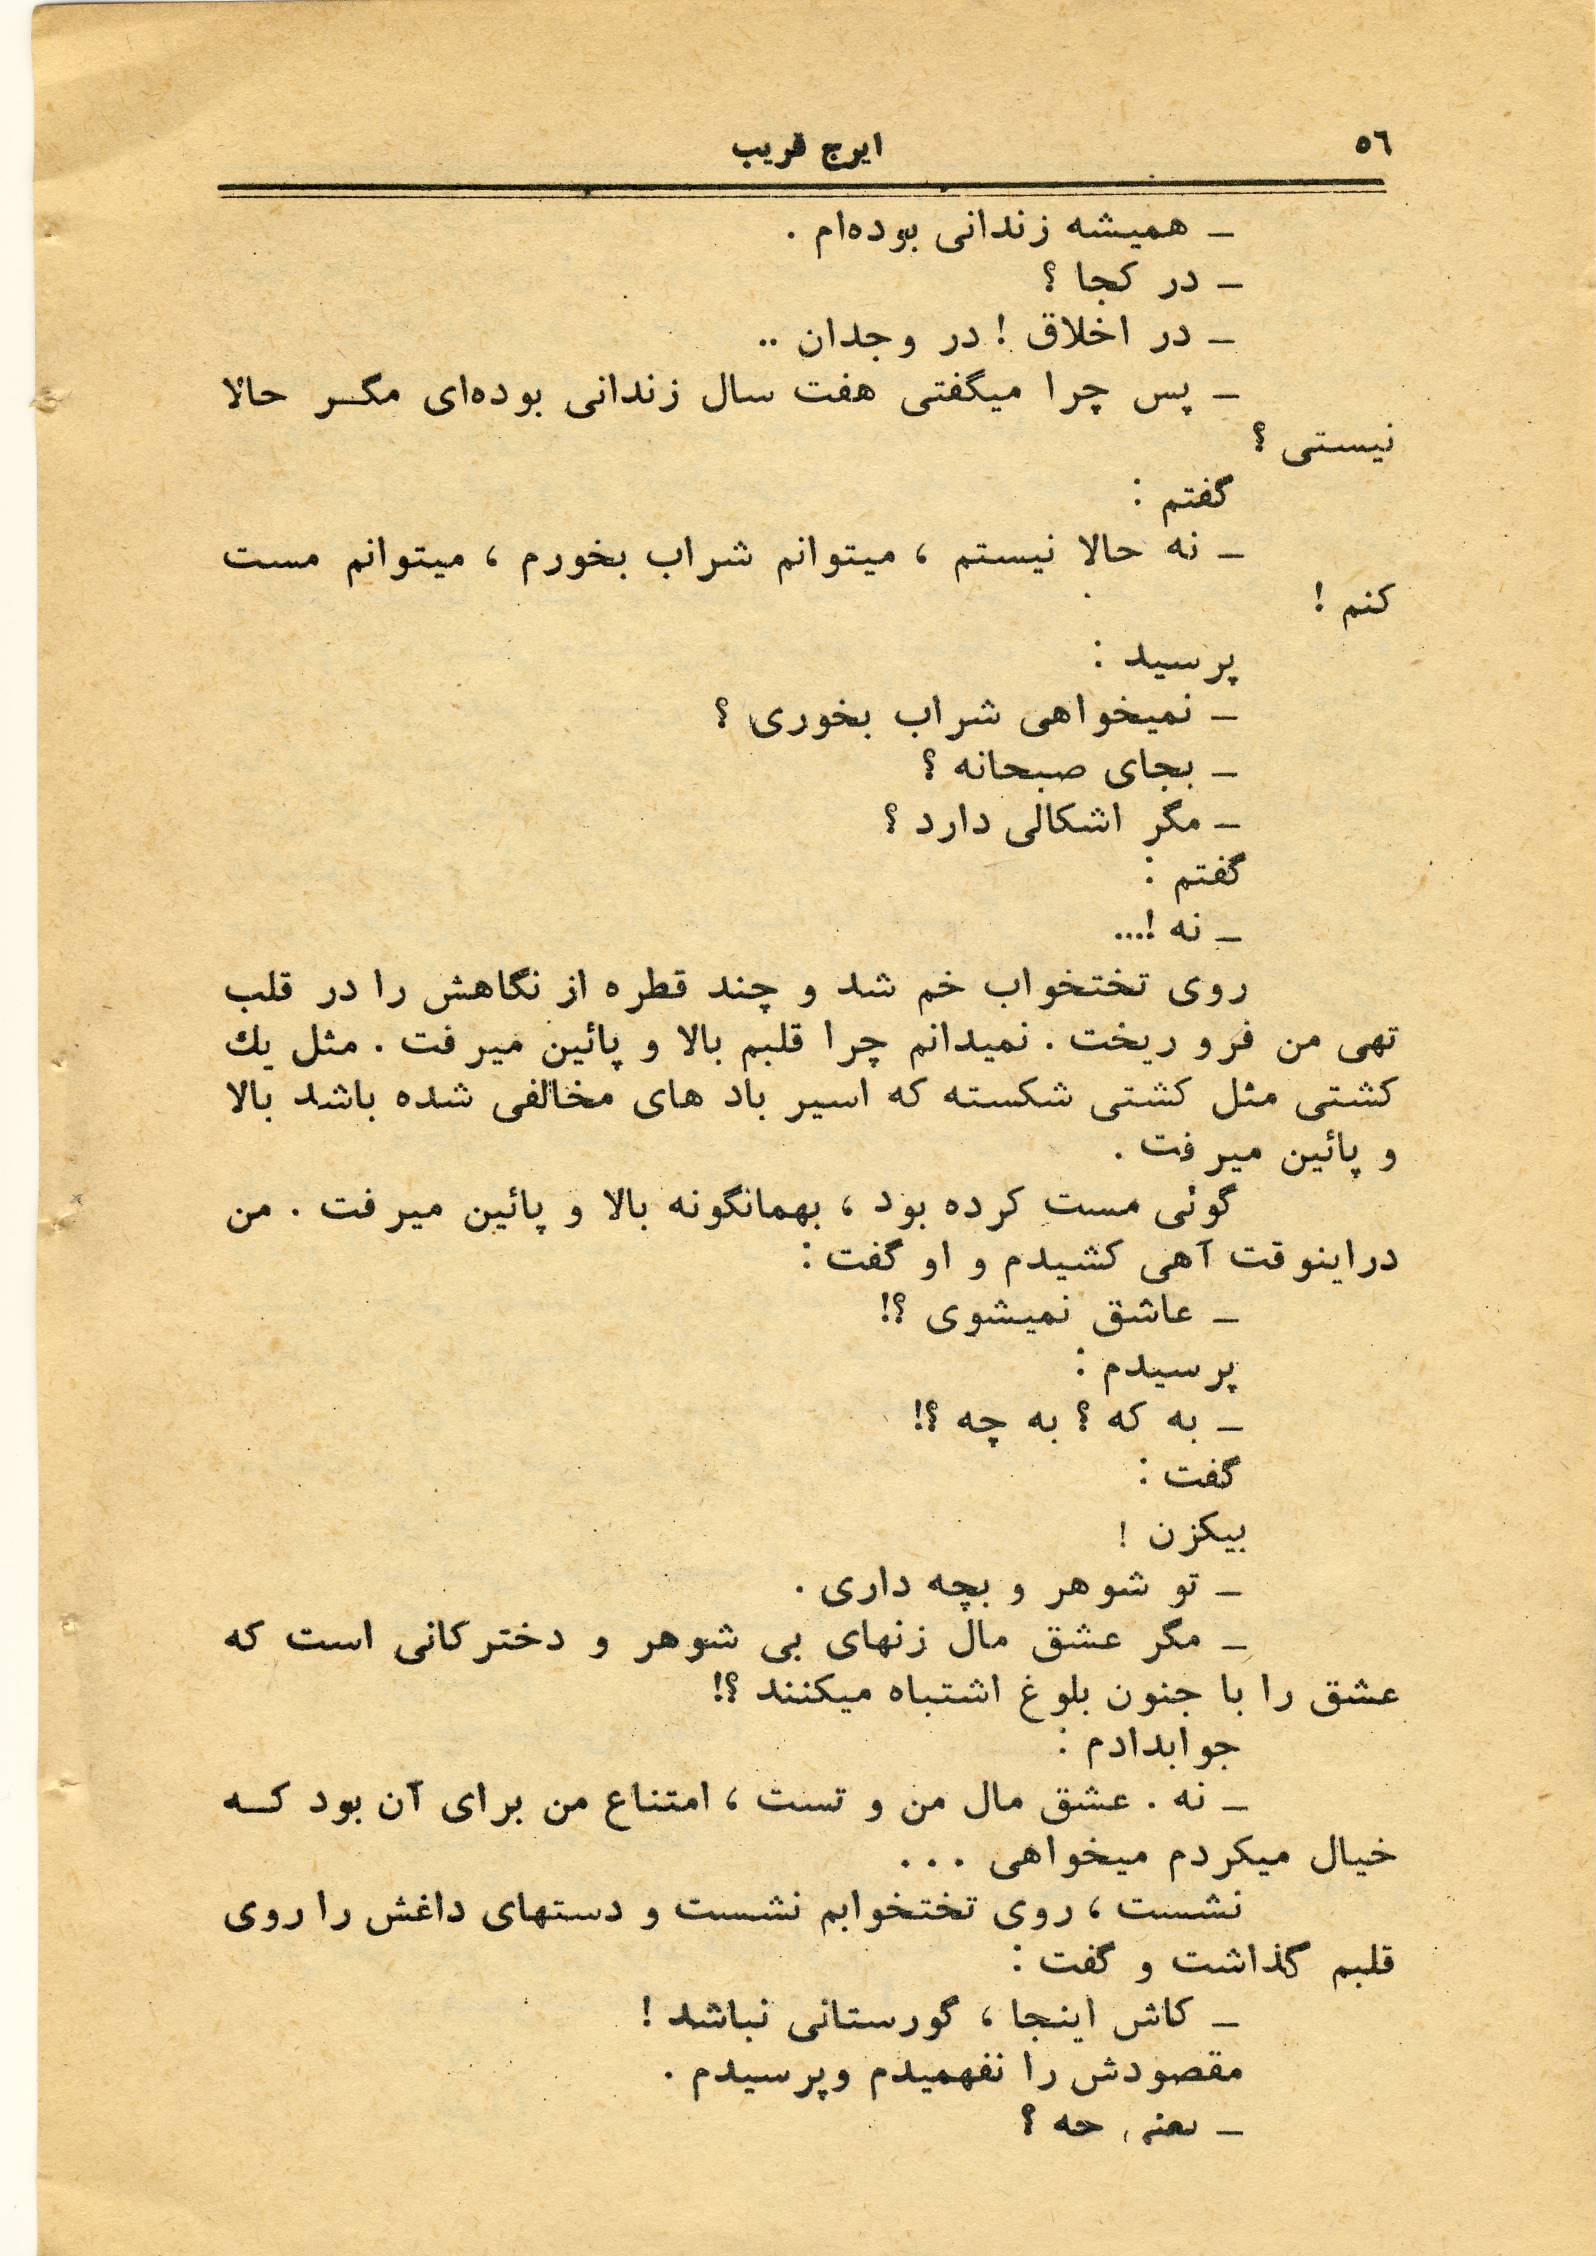 ٥٦
ایرج قریب
ـ همیشه زندانی بوده‌ام .
ـ در کجا ؟
ـ در اخلاق ! در وجدان ..
ـ پس چرا میگفتی هفت سال زندانی بوده‌ای مگر حالا
نیستی ؟
گفتم :
ـ نه حالا نیستم ، میتوانم شراب بخورم ، میتوانم مست
کنم !
پرسید :
ـ نمیخواهی شراب بخوری ؟
ـ بجای صبحانه ؟
ـ مگر اشکالی دارد ؟
گفتم :
ـ نه !...
روی تختخواب خم شد و چند قطره از نگاهش را در قلب
تهی من فرو ریخت . نمیدانم چرا قلبم بالا و پائین میرفت . مثل یك
کشتی مثل کشتی شکسته که اسیر باد های مخالفی شده باشد بالا
و پائین میرفت .
گوئی مست کرده بود ، بهمانگونه بالا و پائین میرفت . من
دراینوقت آهی کشیدم و او گفت :
ـ عاشق نمیشوی ؟!
پرسیدم :
ـ به که ؟ به چه ؟!
گفت :
بیکزن !
ـ تو شوهر و بچه داری .
ـ مگر عشق مال زنهای بی شوهر و دخترکانی است که
عشق را با جنون بلوغ اشتباه میکنند ؟!
جوابدادم :
ـ نه . عشق مال من و تست ، امتناع من برای آن بود که
خیال میکردم میخواهی . . .
نشست ، روی تختخوابم نشست و دستهای داغش را روی
قلبم گذاشت و گفت :
ـ کاش اینجا ، گورستانی نباشد !
مقصودش را نفهمیدم وپرسیدم .
ـ یعنی چه ؟